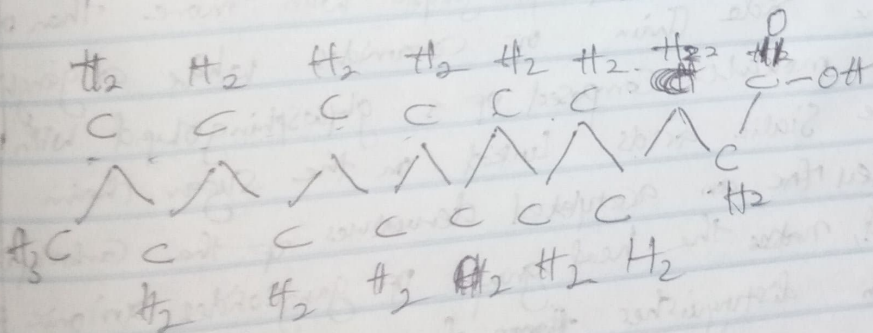 O
H2 H2 H2 H2 H2 H2 H2
C C C C C C C C-OH
H3C C C C C C C C
H2 H2 H2 H2 H2 H2 H2